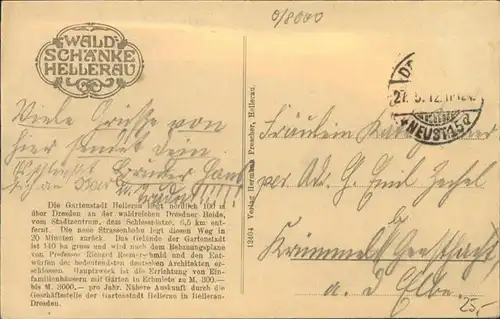 o/8000
WALD-
SCHÄNKE
HELLERAU
Viele Grüsse von
hier sendet dein
Bruder
Die Gartenstadt Hellerau liegt nördlich 100 m
über Dresden an der waldreichen Dresdner Heide,
vom Stadtzentrum, dem Schlossplatze, 6,5 km ent-
fernt. Die neue Strassenbahn legt diesen Weg in
20 Minuten zurück. Das Gelände der Gartenstadt
ist 140 ha gross und wird nach dem Bebauungsplane
von Professor Richard Riemerschmid und den Ent-
würfen der bedeutendsten deutschen Architekten er-
schlossen. Hauptzweck ist die Errichtung von Ein-
familienhäusern mit Gärten in Erbmiete zu M. 300.—
bis M. 3000.— pro Jahr. Nähere Auskunft durch die
Geschäftsstelle der Gartenstadt Hellerau in Hellerau-
Dresden.
12404 Verlag Hermann Prescher, Hellerau.
27.5.12.11-12V.
*NEUST.15d
Fräulein
per Adr. G. Emil Zechel
Krümmel Geesthacht
a. d Elbe.
25,-